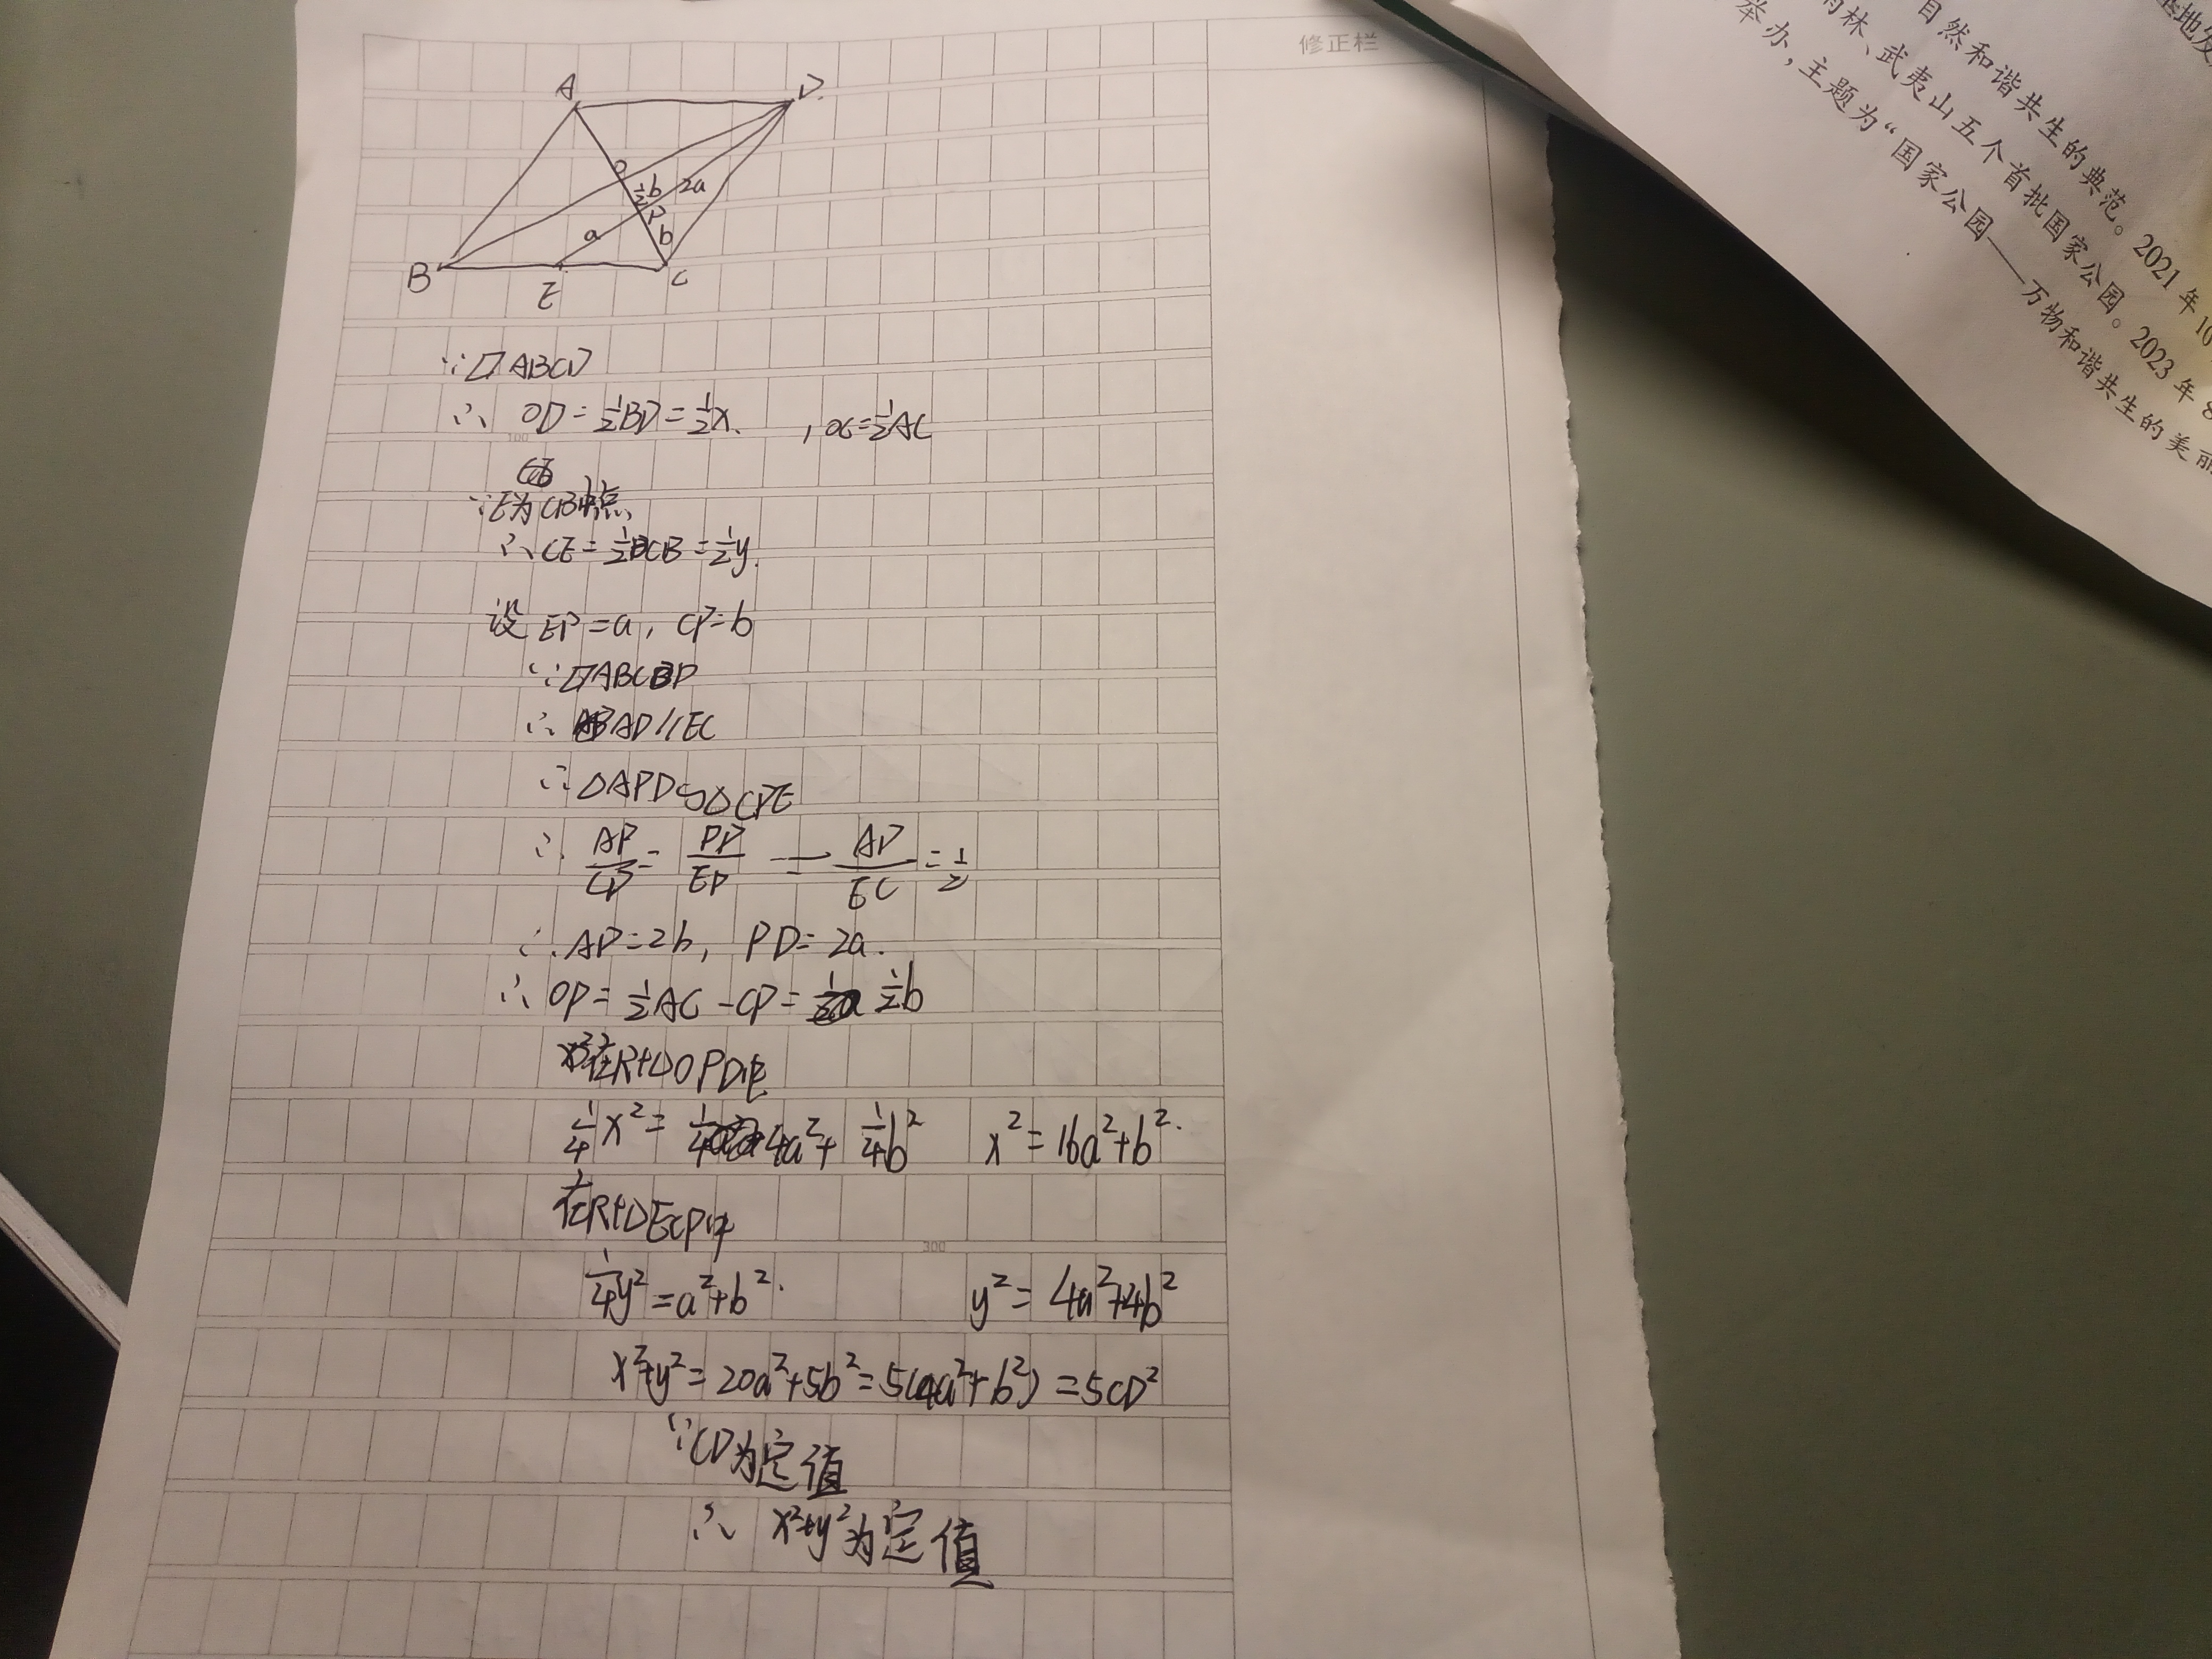 修正栏
A
D
O
½b
2a
P
a
b
B
E
C
∵▱ABCD
∴ OD=½BD=½x. , OC=½AC
100
∵E为CB中点
∴CE=½CB=½y.
设 EP=a, CP=b
∵▱ABCD
∴ AD//EC
∴△APD∽△CPE
∴ AP/CP = PD/EP = AD/EC = ½
∴AP=2b, PD=2a.
∴ OP=½AC-CP= ½b
在Rt△OPD中
¼x²= 4a²+ ¼b² x²=16a²+b².
在Rt△ECP中
300
¼y²=a²+b². y²=4a²+4b²
x²+y²=20a²+5b²=5(4a²+b²)=5CD²
∵CD为定值
∴ x²+y²为定值
自然和谐共生的典范。2021年10
林、武夷山五个首批国家公园。2023年8
举办,主题为“国家公园——万物和谐共生的美丽